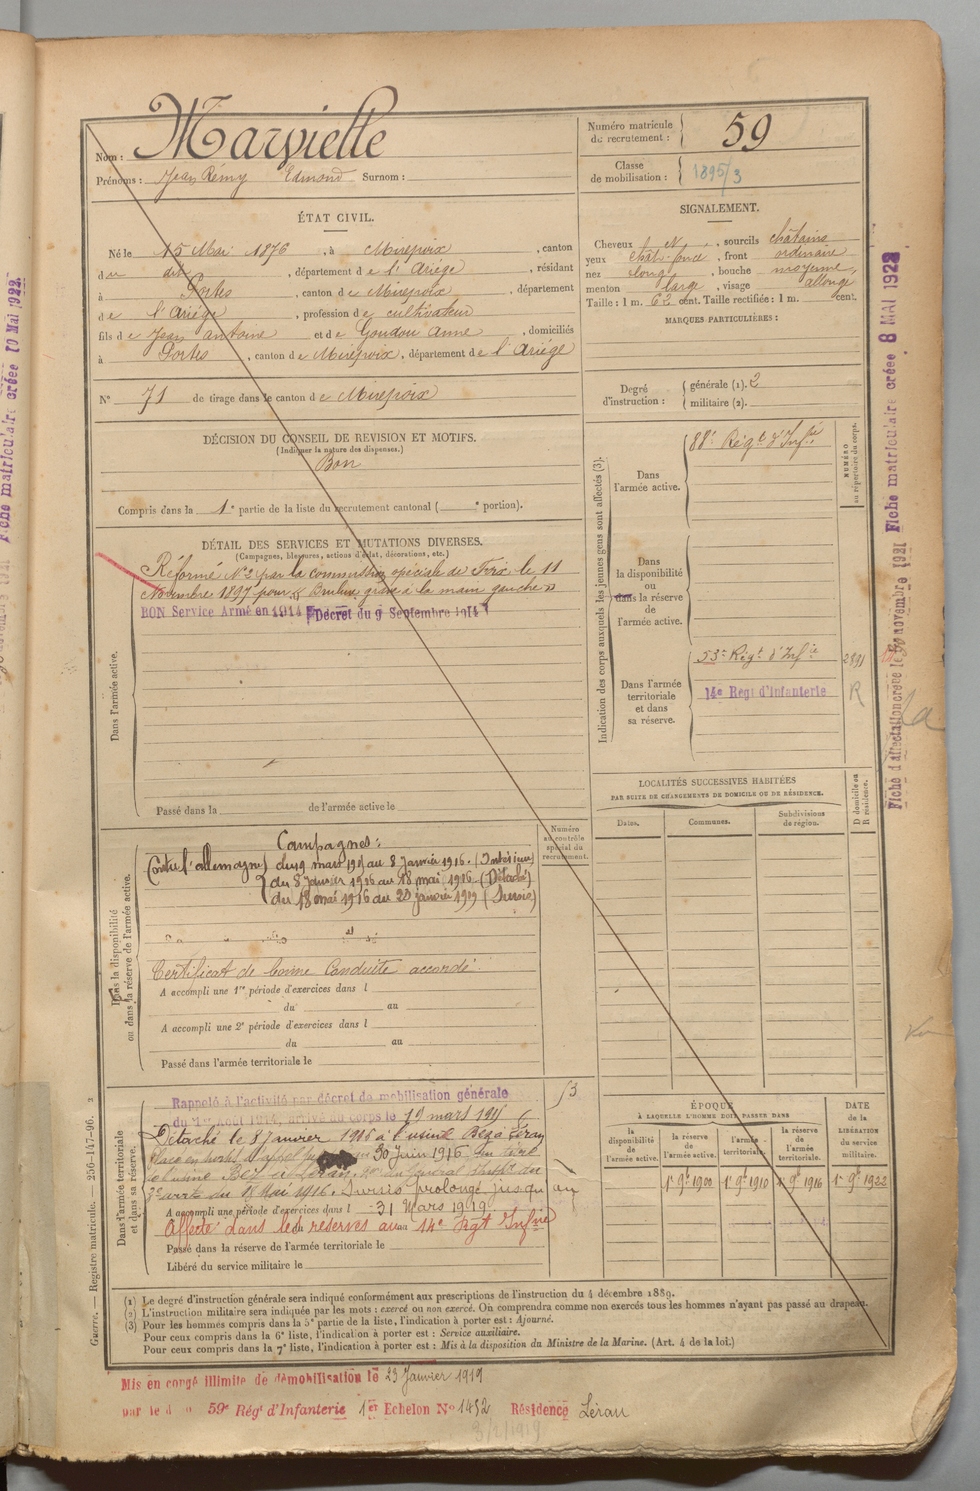 Nom : Marvielle
Prénoms : Jean Rémy Edmond Surnom :
Numéro matricule
de recrutement : 59
Classe
de mobilisation : 1895/3
ÉTAT CIVIL.
Né le 15 Mai 1876, à Mirepoix, canton
du dit, département de l'Ariège, résidant
à Portes, canton de Mirepoix, département
de l'Ariége, profession de cultivateur
fils de Jean Antoine et de Goudou Anne, domiciliés
à Portes, canton de Mirepoix, département de l'Ariége
N° 71 de tirage dans le canton de Mirepoix
SIGNALEMENT.
Cheveux N, sourcils châtains
yeux chât. foncé, front ordinaire
nez long, bouche moyenne,
menton large, visage allongé
Taille : 1 m. 62 cent. Taille rectifiée : 1 m. cent.
MARQUES PARTICULIÈRES :
Degré
d'instruction :
générale (1). 2
militaire (2).
DÉCISION DU CONSEIL DE REVISION ET MOTIFS.
(Indiquer la nature des dispenses.)
Bon
Compris dans la 1e partie de la liste du recrutement cantonal ( e portion).
DÉTAIL DES SERVICES ET MUTATIONS DIVERSES.
(Campagnes, blessures, actions d'éclat, décorations, etc.)
Réformé N° 2 par la commission spéciale de Foix le 11
Novembre 1897 pour « Brulure grave à la main gauche »
BON Service Armé en 1914 Décret du 9 Septembre 1914
Dans l'armée active.
Passé dans la de l'armée active le
Indication des corps auxquels les jeunes gens sont affectés (3).
NUMÉRO
au répertoire du corps.
Dans
l'armée active.
88e Régt d'Infie
Dans
la disponibilité
ou
dans la réserve
de
l'armée active.
Dans l'armée
territoriale
et dans
sa réserve.
53e Régt d'Infie
14e Régt d'Infanterie
R
LOCALITÉS SUCCESSIVES HABITÉES
PAR SUITE DE CHANGEMENTS DE DOMICILE OU DE RÉSIDENCE.
Dates.
Communes.
Subdivisions
de région.
D domicile ou
R résidence.
Numéro
au contrôle
spécial du
recrutement.
Dans la disponibilité
ou dans la réserve de l'armée active.
Campagnes :
Contre l'allemagne du 19 mars 1915 au 8 Janvier 1916. (Intérieur)
du 8 Janvier 1916 au 18 mai 1916 (Détaché)
du 18 mai 1916 au 20 janvier 1919 (Sursis)
Certificat de bonne Conduite accordé.
A accompli une 1re période d'exercices dans l
du au
A accompli une 2e période d'exercices dans l
du au
Passé dans l'armée territoriale le
Dans l'armée territoriale
et dans sa réserve.
Rappelé à l'activité par décret de mobilisation générale
du 1er Août 1914, arrivé au corps le 19 mars 1915
Détaché le 8 Janvier 1916 à l'usine Bez à Léran
30 Juin 1916
l'usine Bez à Léran
du 18 Mai 1916. Sursis prolongé jusqu'au
A accompli une période d'exercices dans l 31 Mars 1919.
Affecté dans les réserves au 14e Régt Infrie
Passé dans la réserve de l'armée territoriale le
Libéré du service militaire le
ÉPOQUE
À LAQUELLE L'HOMME DOIT PASSER DANS
la
disponibilité
de
l'armée active.
la réserve
de
l'armée active.
l'armée
territoriale.
la réserve
de
l'armée
territoriale.
DATE
de la
LIBÉRATION
du service
militaire.
1er 9e 1900
1er 9e 1910
1er 9e 1916
1er 9e 1922
(1) Le degré d'instruction générale sera indiqué conformément aux prescriptions de l'instruction du 4 décembre 1889.
(2) L'instruction militaire sera indiquée par les mots : exercé ou non exercé. On comprendra comme non exercés tous les hommes n'ayant pas passé au drapeau.
(3) Pour les hommes compris dans la 5e partie de la liste, l'indication à porter est : Ajourné.
Pour ceux compris dans la 6e liste, l'indication à porter est : Service auxiliaire.
Pour ceux compris dans la 7e liste, l'indication à porter est : Mis à la disposition du Ministre de la Marine. (Art. 4 de la loi.)
Mis en congé illimité de démobilisation le 23 Janvier 1919
par le 59e Régt d'Infanterie 1er Echelon N° 1452 Résidence Léran
3/2/1919
Guerre. — Registre matricule. — 256-147-96.
Fiche matriculaire créée 8 MAI 1923
Fiche d'affectation créée le 30 novembre 1921
Fiche matriculaire créée 10 Mai 1923